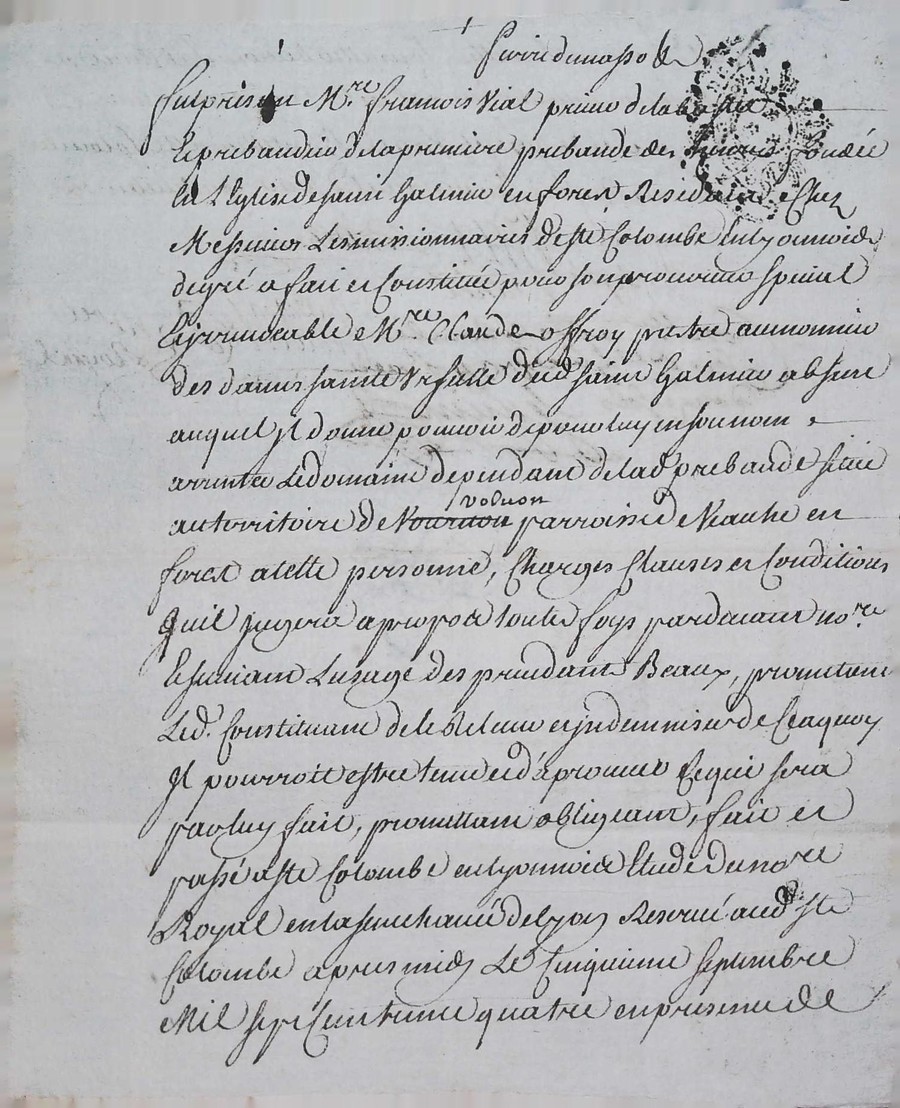 fut present Mre francois Vial prieur de la
Et prebandier de la premiere prebande des fondée
En L'Eglise de saint Galmier en forest Residant Chez
Messieurs Les missionnaires de ste Colombe En lyonnois
de gré a fait et Constitué pour son procureur special
Et jrrevocable Mre Claude offroy prestre aumonier
des dames sainte Vrsulle dud saint Galmier absent
auquel jl donne pouvoir de pour luy en son nom
arrenter Le domaine dependant de lad prebande située
au territoire de volvon parroisse de Veauche en
forest a telle personne, Charges Clauses et Conditions
quil jugera a propos toute foys pardevant nore
Et suivant L'uzage des preceddants Beaux, promettant
Led. Constituant de le Relever et jndemniser de Ce a quoy
Jl pourroit estre tenu et d'aprouver Ce qui sera
par luy fait, promettant obligeant, fait et
passé a ste Colombe en lyonnois Etude du nore
Royal en la senechaucé de lyon Reservé aud ste
Colombe apres midy Le Cinquieme septembre
Mil sept Cent trente quatre en presence de